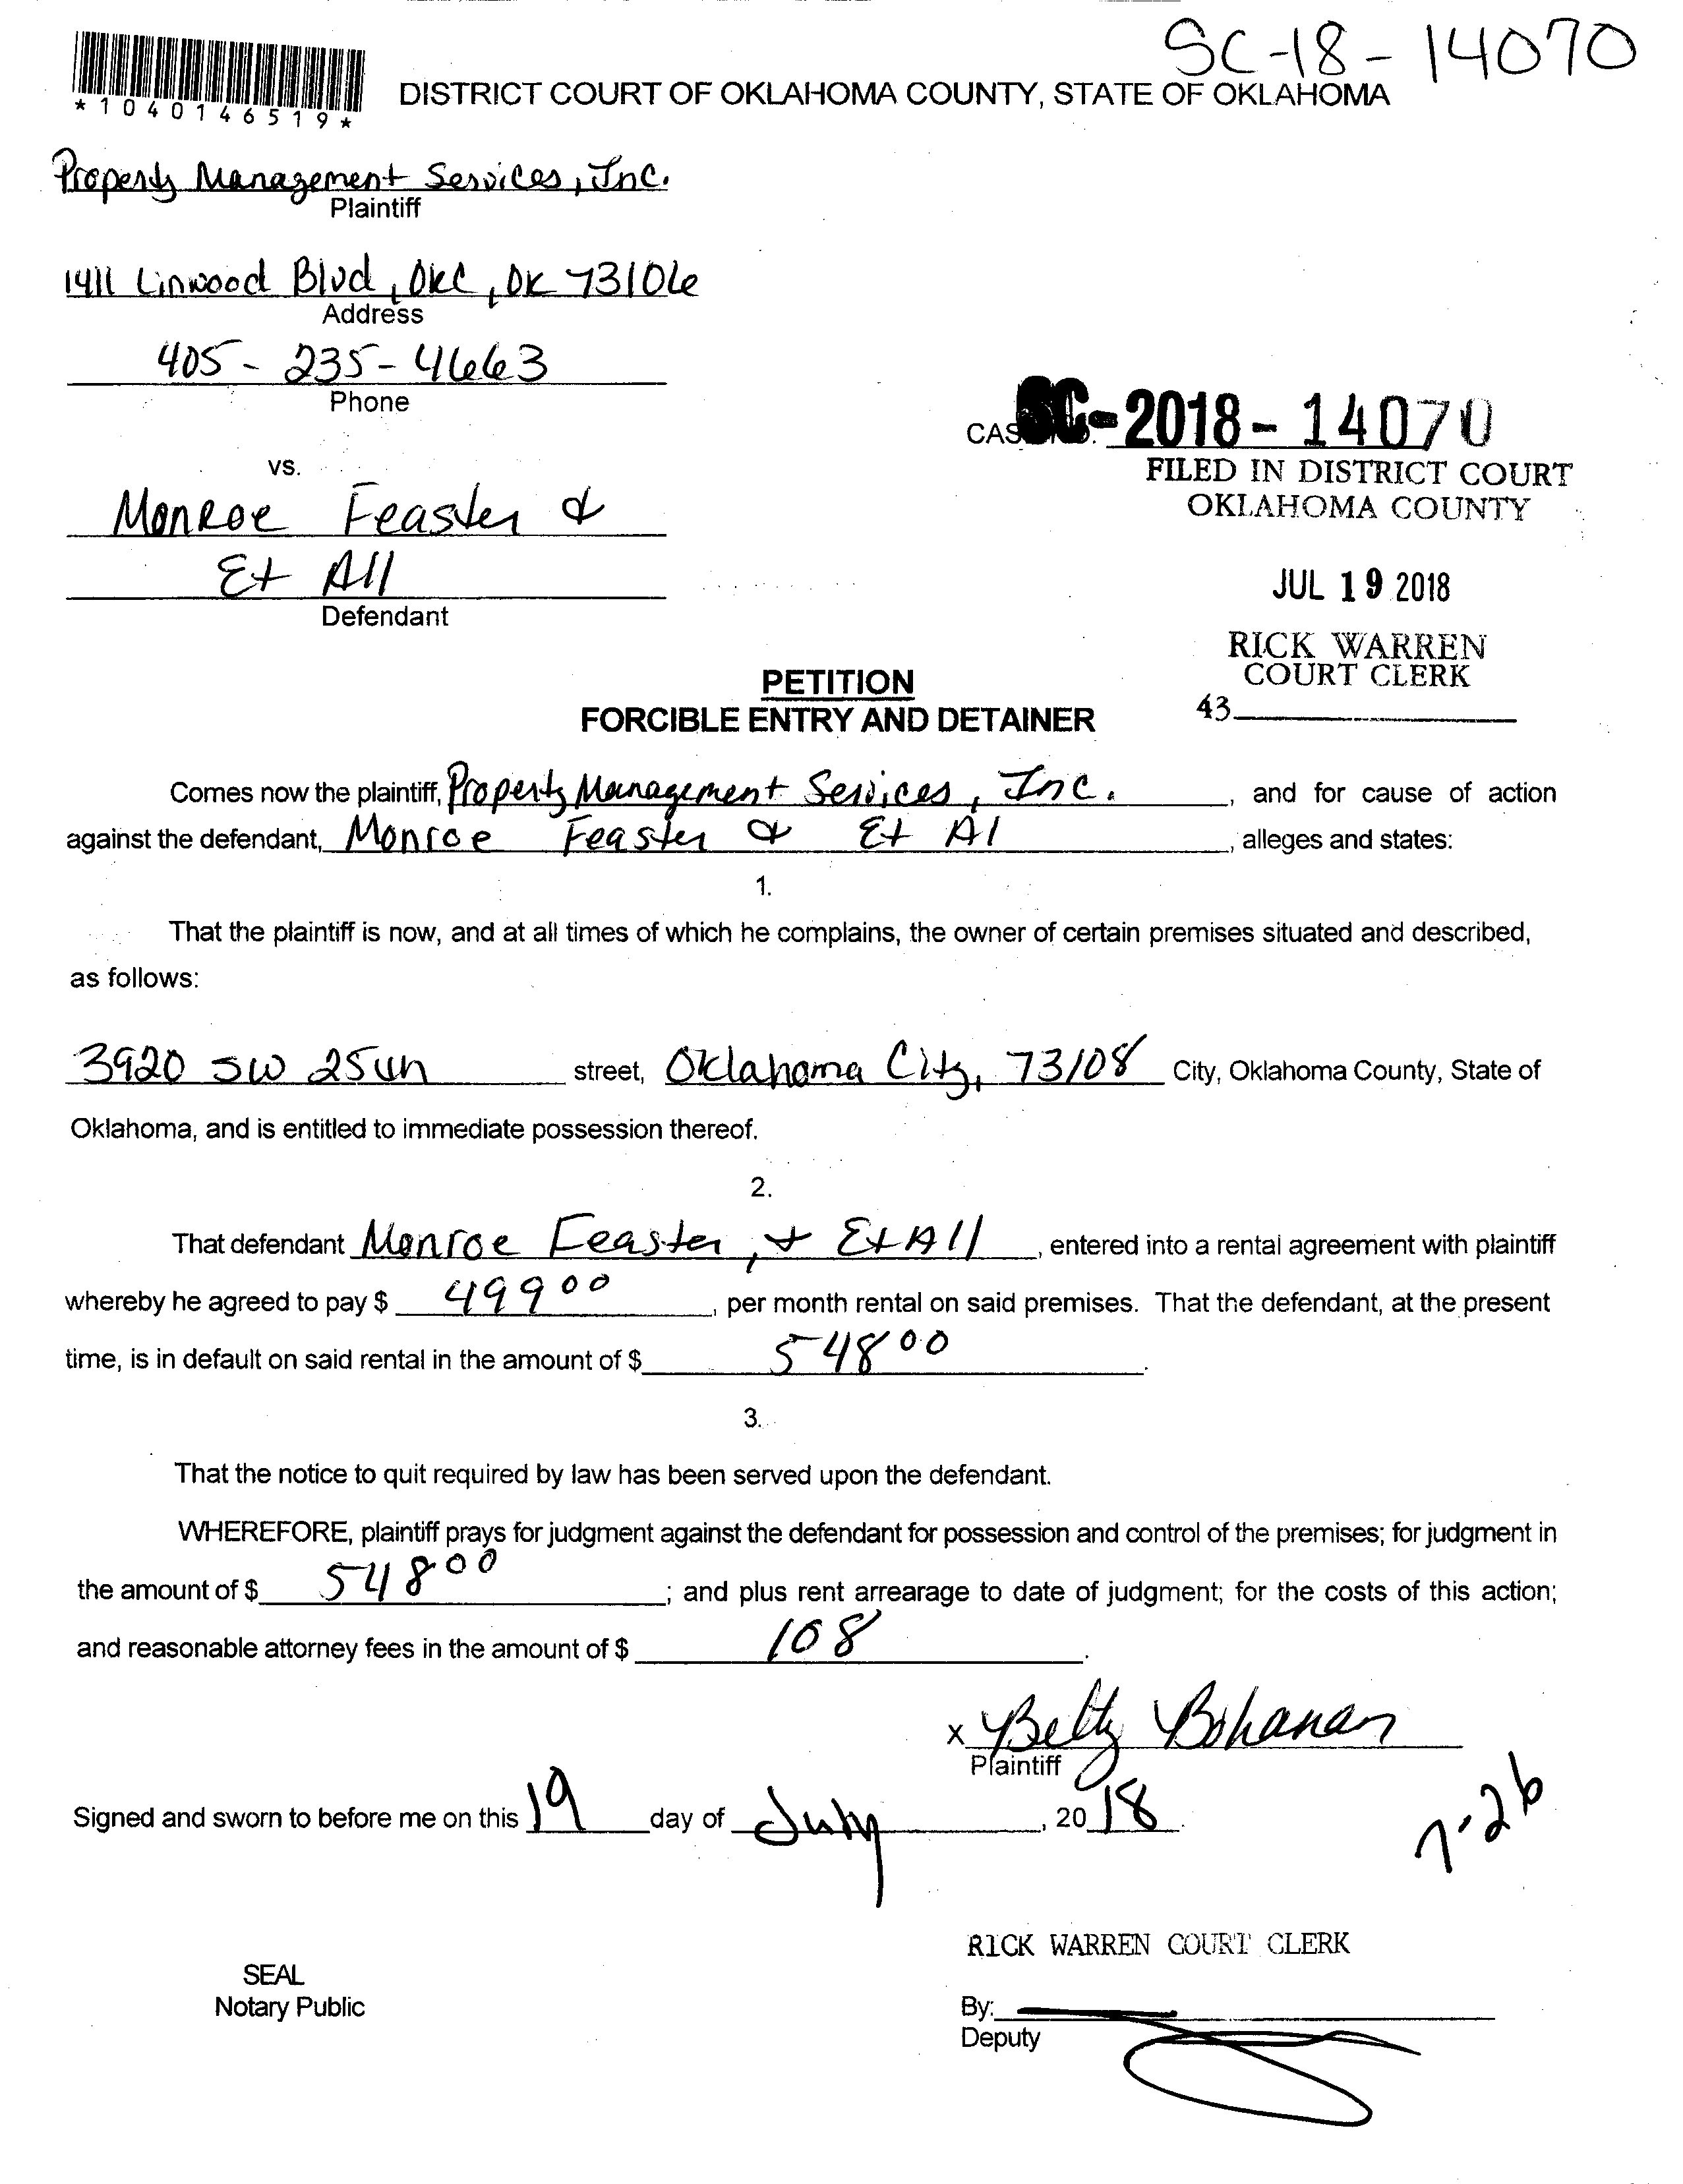 SC-18-14070
*1040146519*
DISTRICT COURT OF OKLAHOMA COUNTY, STATE OF OKLAHOMA
Property Management Services, Inc.
Plaintiff
1411 Linwood Blvd, OKC, OK 73106
Address
405-235-4663
Phone
CAS SC-2018-14070
FILED IN DISTRICT COURT
OKLAHOMA COUNTY
vs.
Monroe Feaster &
Et All
Defendant
JUL 19 2018
RICK WARREN
COURT CLERK
43
PETITION
FORCIBLE ENTRY AND DETAINER
Comes now the plaintiff, Property Management Services, Inc. , and for cause of action
against the defendant, Monroe Feaster & Et Al , alleges and states:
1.
That the plaintiff is now, and at all times of which he complains, the owner of certain premises situated and described,
as follows:
3920 SW 25th street, Oklahoma City, 73108 City, Oklahoma County, State of
Oklahoma, and is entitled to immediate possession thereof.
2.
That defendant Monroe Feaster, + Et All , entered into a rental agreement with plaintiff
whereby he agreed to pay $ 499 00 , per month rental on said premises. That the defendant, at the present
time, is in default on said rental in the amount of $ 548 00 .
3.
That the notice to quit required by law has been served upon the defendant.
WHEREFORE, plaintiff prays for judgment against the defendant for possession and control of the premises; for judgment in
the amount of $ 548 00 ; and plus rent arrearage to date of judgment; for the costs of this action;
and reasonable attorney fees in the amount of $ 108 .
x Betty Bohanan
Plaintiff
Signed and sworn to before me on this 19 day of July , 20 18 .
7-26
RICK WARREN COURT CLERK
SEAL
Notary Public
By:
Deputy